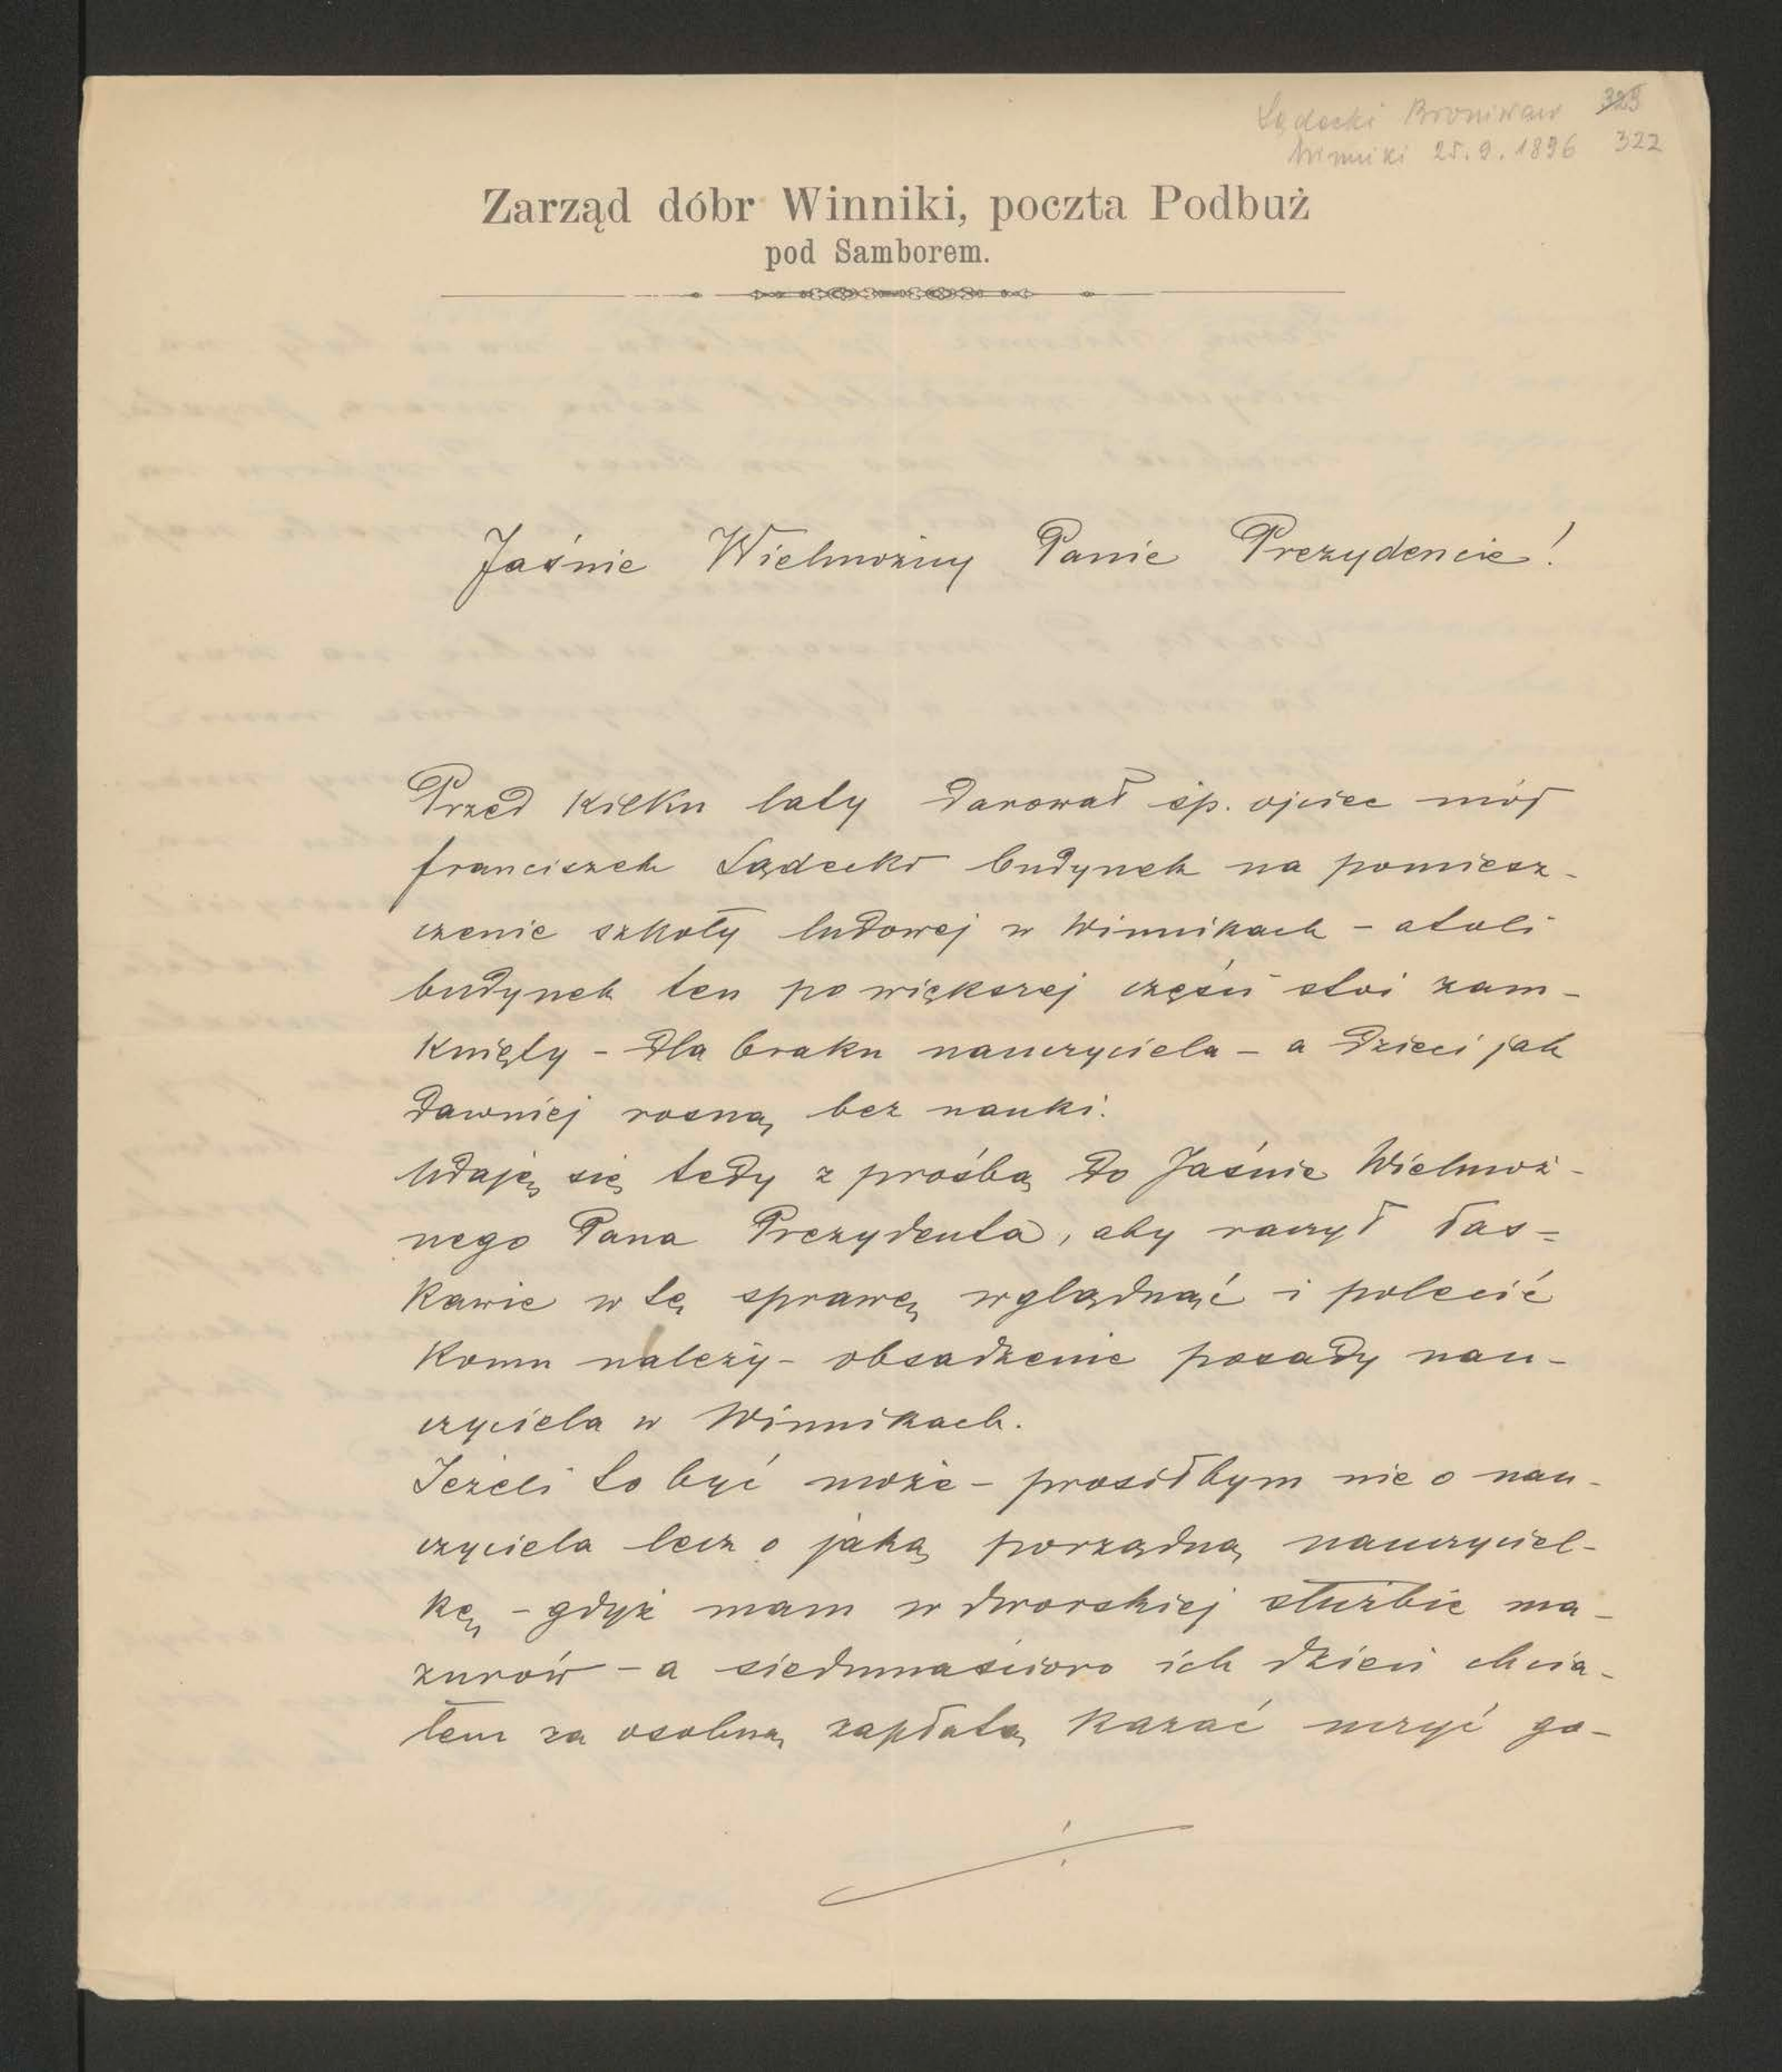 Lądecki Bronisław 323
Winniki 25.9.1896 322
Zarząd dóbr Winniki, poczta Podbuż
pod Samborem.
Jaśnie Wielmożny Panie Prezydencie!
Przed kilku laty darował śp. ojciec mój
franciszek Lądecki budynek na pomiesz-
czenie szkoły ludowej w Winnikach - atoli
budynek ten po większej części stoi zam-
knięty - dla braku nauczyciela - a dzieci jak
dawniej rosną bez nauki.
Udaję się tedy z prośbą do Jaśnie Wielmoż-
nego Pana Prezydenta, aby raczył łas=
kawie w tę sprawę wglądnąć i polecić
komu należy - obsadzenie posady nau-
czyciela w Winnikach.
Jeżeli to być może - prosiłbym nie o nau-
czyciela lecz o jaką porządną nauczyciel-
kę - gdyż mam w dworskiej służbie ma-
zurów - a siedmnaścioro ich dzieci chcia-
łem za osobną zapłatą kazać uczyć go-